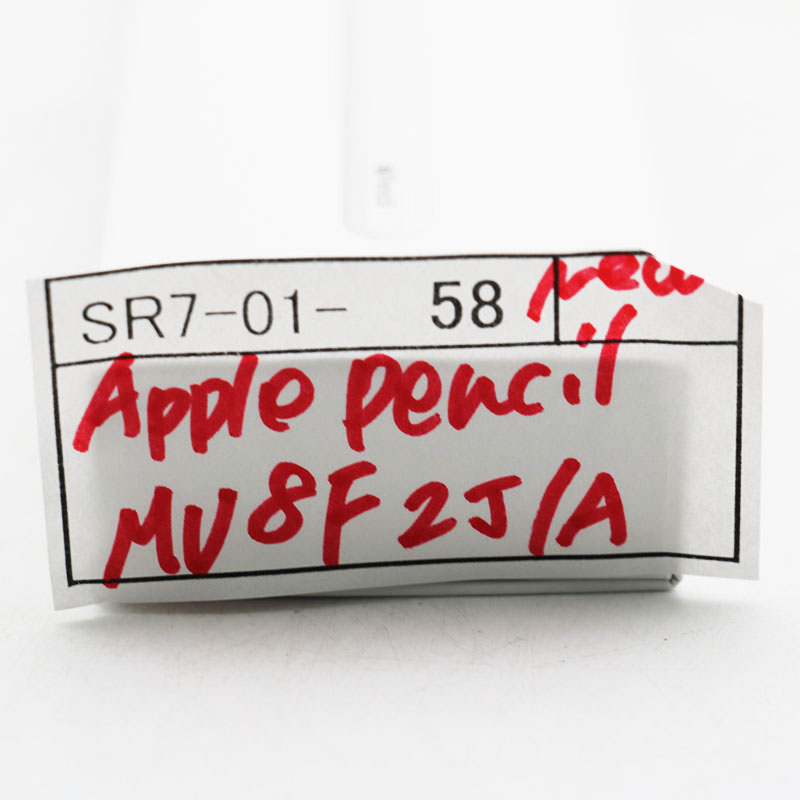 SR7-01- 58 new
Apple pencil
MU8F2J/A